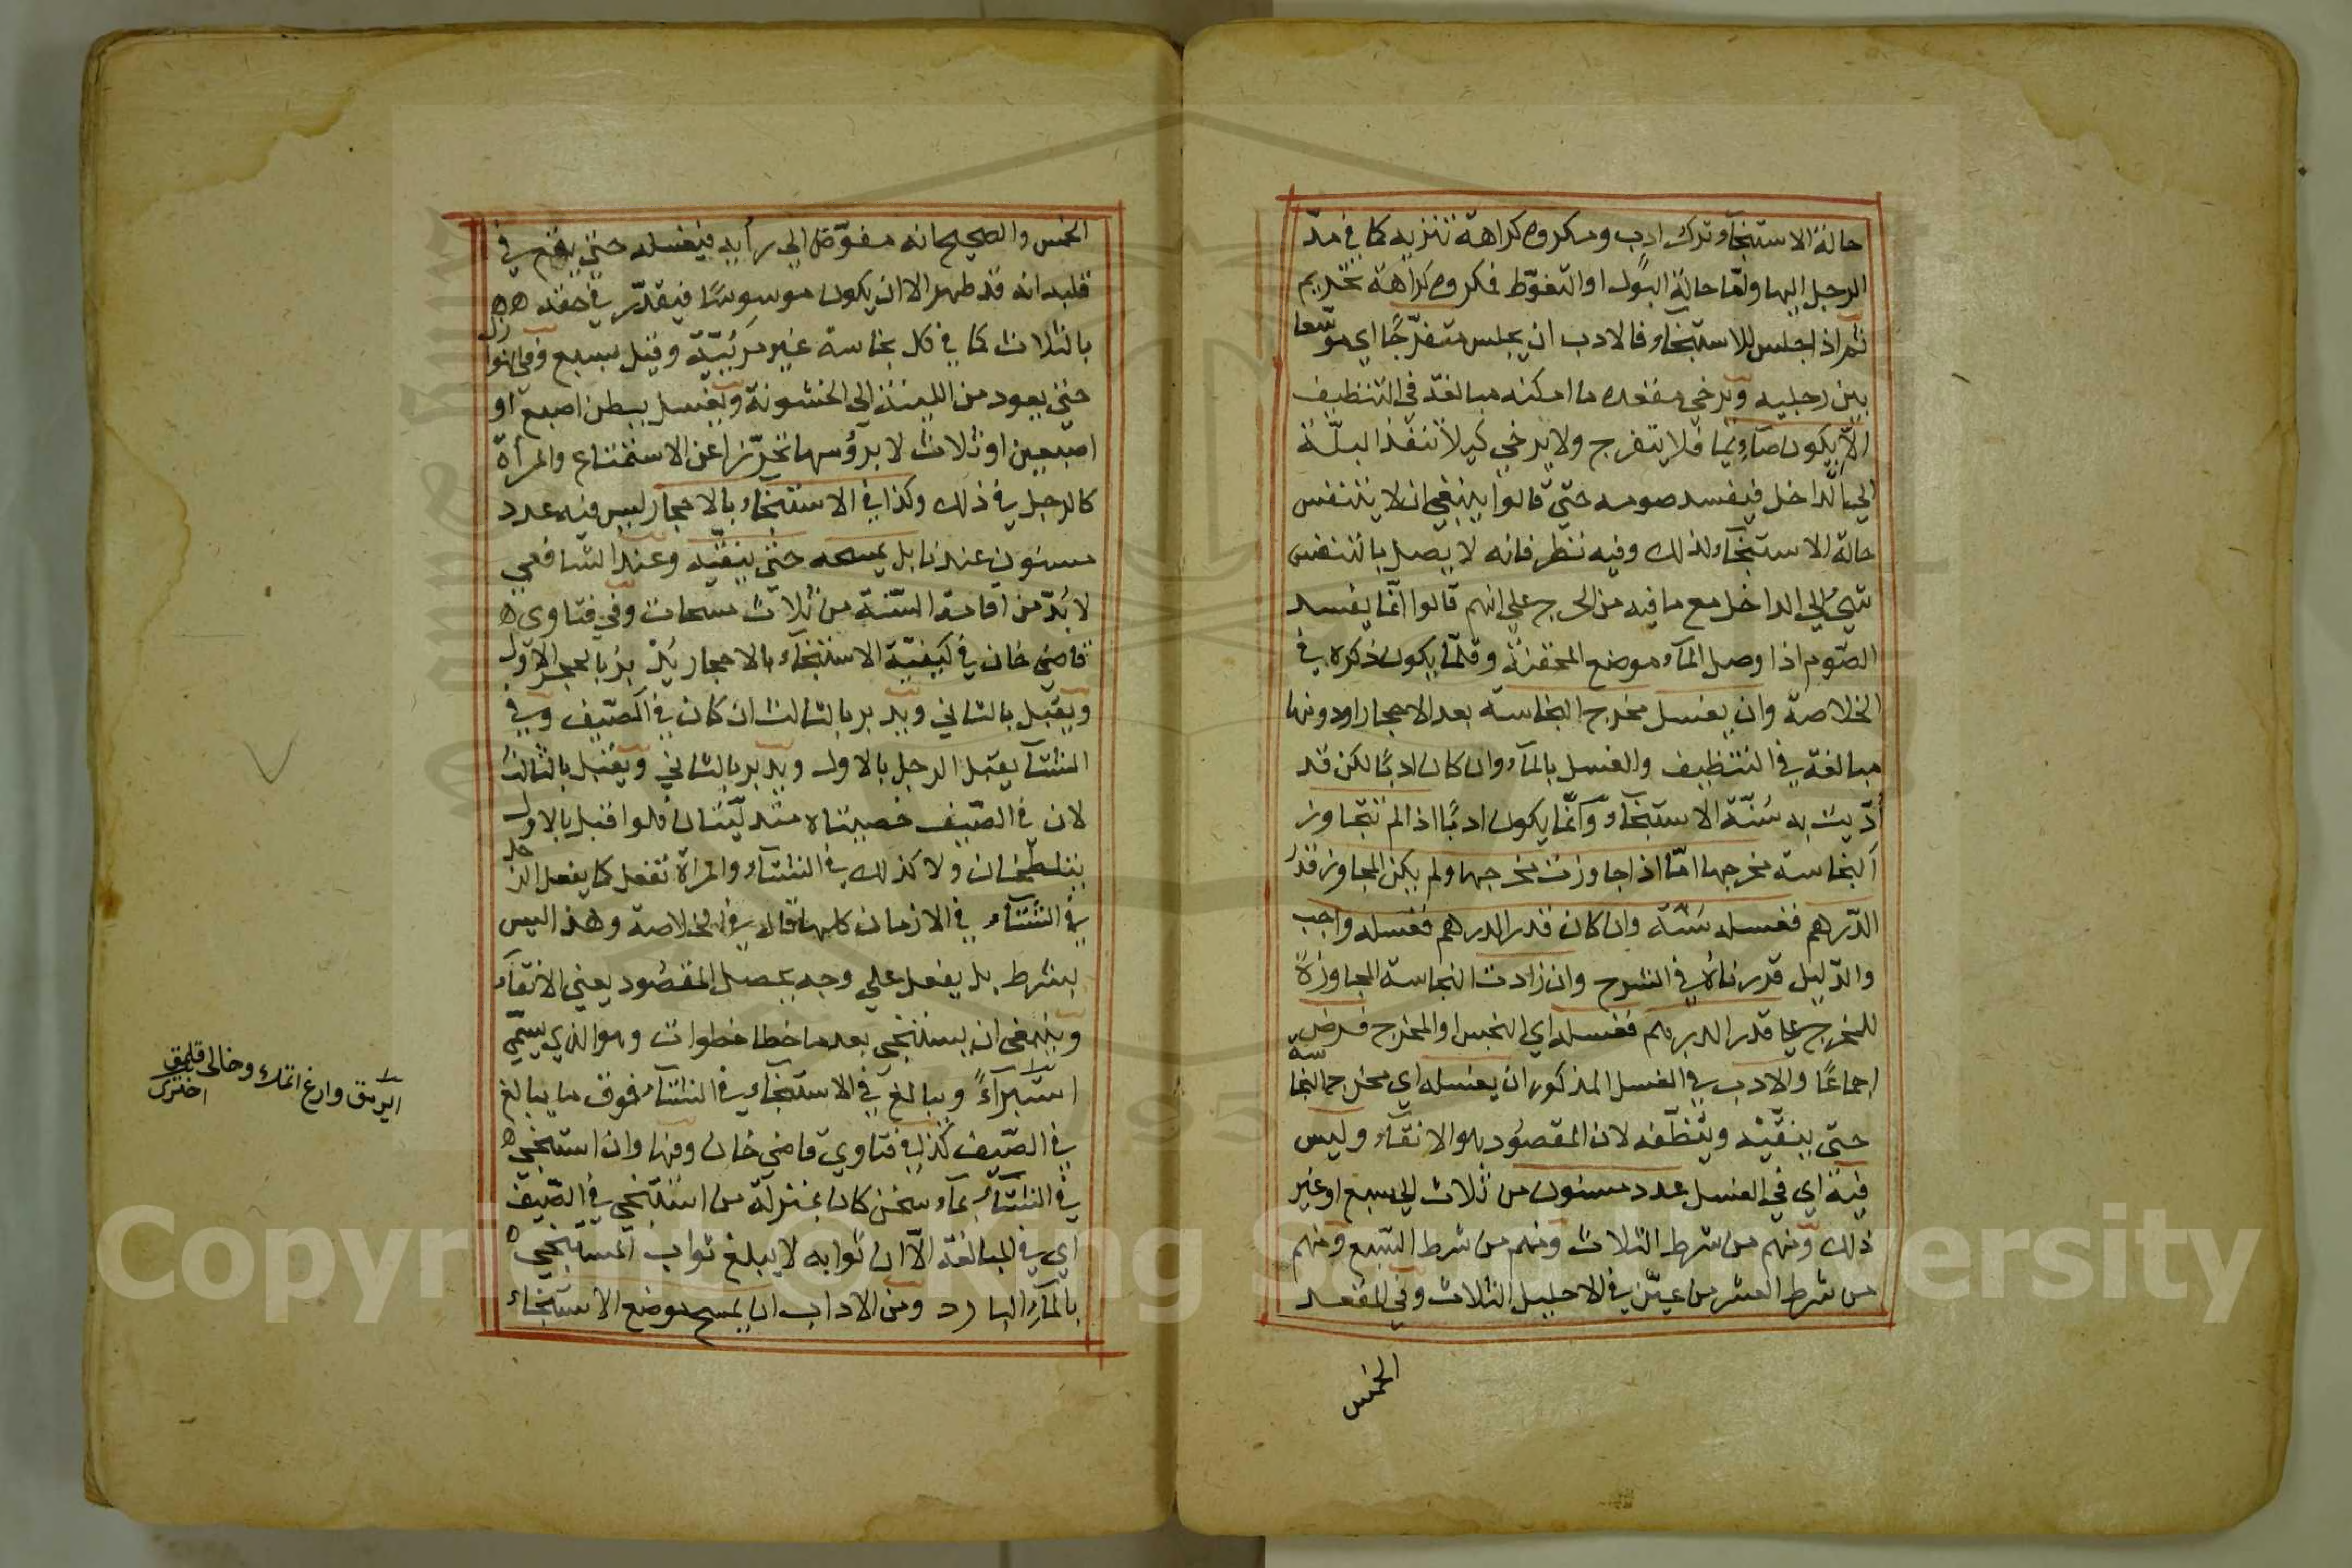 حالة الاستنجآء وترك ادب ومكروه كراهة تنزيه كما في مدّ
الرجل اليها وامّا حالة البول او التغوّط فمكروه كراهة تحريم
ثم اذا جلس للاستنجآء فالادب ان يجلس متفرّجًا اي موسّعا
بين رجليه ويرخي مقعده ما امكنه مبالغة في التنظيف
الاّ ان يكون صآئما فلا يتفرج ولا يرخي كيلا تنفذ البلّة
الي الداخل فيفسد صومه حتي قالوا ينبغي ان لا يتنفس
حالة الاستنجآء لذلك وفيه نظر فانه لا يصل بالتنفس
شيء الي الداخل مع ما فيه من الحرج علي انهم قالوا انّما يفسد
الصّوم اذا وصل المآء موضع المحقنة وقلّما يكون ذكره في
الخلاصة وان يغسل مخرج النجاسة بعد الاحجار او دونها
مبالغة في التنظيف والغسل بالمآء وان كان ادبًا لكن قد
أدّيت به سُنّة الاستنجآء وانّما يكون ادبًا اذا لم تتجاوز
النجاسة مخرجها امّا اذا جاوزت مخرجها ولم يكن المجاوز قدر
الدّرهم فغسله سُنّة وان كان قدر الدرهم فغسله واجب
والدّليل قررناه في الشرح وان زادت النجاسة المجاوزة
للمخرج علي قدر الدرهم فغسله اي النجس او المخرج فرض
اجماعًا والادب في الغسل المذكور ان يغسله اي مخرج النجاسة
حتي ينقّيه وينظّفه لان المقصُود هو الانقآء وليس
فيه اي في الغسل عدد مسنون من ثلاث الي سبع او غير
ذلك ومنهم من شرط الثلاث ومنهم من شرط السّبع ومنهم
من شرط العشر من عيّن في الاحليل الثلاث وفي المقعد
الخمس
الخمس والصحيح انه مفوّض الي رأيه فيغسله حتي يقع في
قلبه انه قد طهر الا ان يكون موسوسًا فيقدّر في حقه ه ه
بالثلاث كما في كل نجاسة غير مرئيّة وقيل بسبع وفي النوازل
حتي يعود من اللينة الي الخشونة ويغسل ببطن اصبع او
اصبعين او ثلاث لا برؤسها تحرّزا عن الاستمتاع والمرأة
كالرجل في ذلك وكذا في الاستنجآء بالاحجار ليس فيه عدد
مسنون عندنا بل يمسحه حتي ينقّيه وعند الشافعي
لا بُدّ من اقامة السّنة من ثلاث مسحات وفي فتاوي ه
قاضي خان في كيفيّة الاستنجآء بالاحجار يُدْبر بالحجر الاوّل
ويقبل بالثاني ويدبر بالثالث ان كان في الصّيف وفي
الشتآء يقبل الرجل بالاول ويدبر بالثاني ويقبل بالثالث
لان في الصّيف خصيتاه متدلّيتان فلو اقبل بالاول
يتلطّخان ولا كذلك في الشتآء والمرأة تفعل كما يفعل الرجل
في الشتآء في الازمان كلها قال في الخلاصة وهذا ليس
بشرط بل يفعل علي وجه يحصل المقصُود يعني الانقآء
وينبغي ان يستنجي بعد ما خطا خطوات وهو الذي يسمّي
استبرآءً ويبالغ في الاستنجآء في الشتآء فوق ما يبالغ
في الصّيف كذا في فتاوي قاضي خان وفيها وان استنجي ه
في الشتآء بمآء سخن كان بمنزلة من استنجي في الصّيف
اي في المبالغة الاّ ان ثوابه لا يبلغ ثواب المستنجي ه
بالمآء البارد ومن الاداب ان يمسح موضع الاستنجآء
وارغ اتمك وخالي قلمق
اختري
Copyright © King Saud University